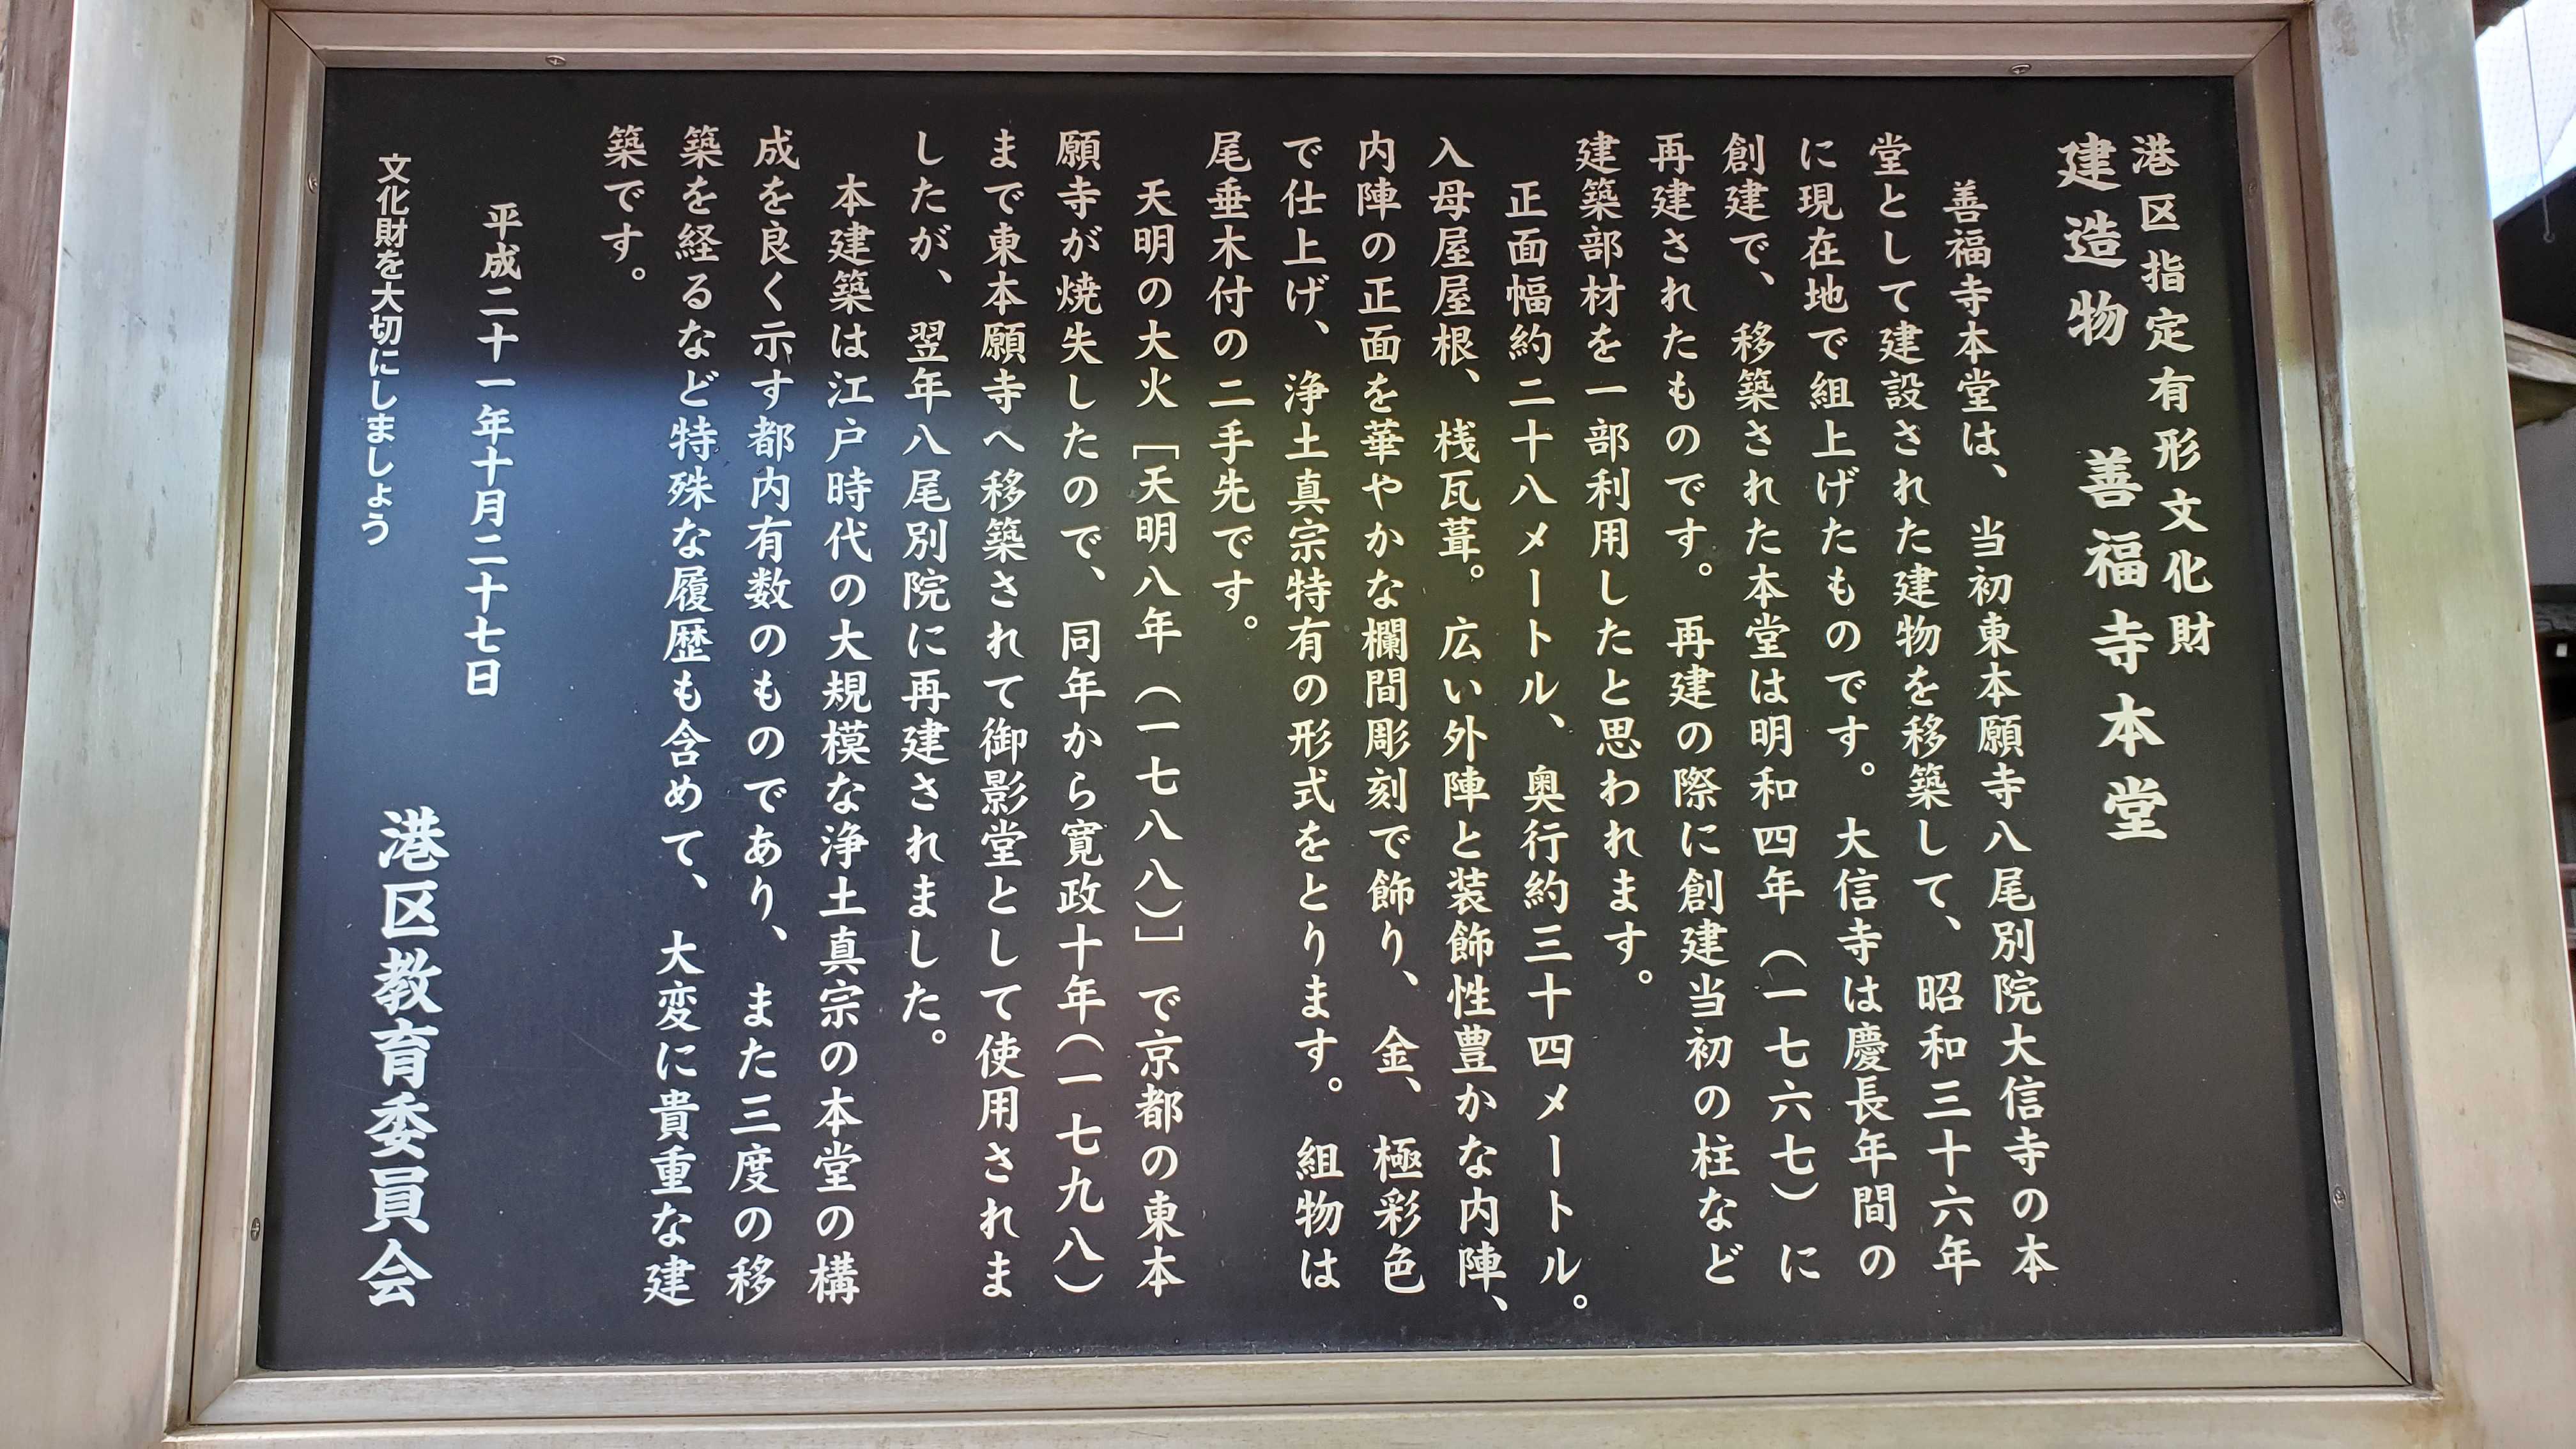 港区指定有形文化財
建造物　善福寺本堂
　善福寺本堂は、当初東本願寺八尾別院大信寺の本
堂として建設された建物を移築して、昭和三十六年
に現在地で組上げたものです。大信寺は慶長年間の
創建で、移築された本堂は明和四年（一七六七）に
再建されたものです。再建の際に創建当初の柱など
建築部材を一部利用したと思われます。
　正面幅約二十八メートル、奥行約三十四メートル。
入母屋屋根、桟瓦葺。広い外陣と装飾性豊かな内陣、
内陣の正面を華やかな欄間彫刻で飾り、金、極彩色
で仕上げ、浄土真宗特有の形式をとります。組物は
尾垂木付の二手先です。
　天明の大火［天明八年（一七八八）］で京都の東本
願寺が焼失したので、同年から寛政十年（一七九八）
まで東本願寺へ移築されて御影堂として使用されま
したが、翌年八尾別院に再建されました。
　本建築は江戸時代の大規模な浄土真宗の本堂の構
成を良く示す都内有数のものであり、また三度の移
築を経るなど特殊な履歴も含めて、大変に貴重な建
築です。
平成二十一年十月二十七日
港区教育委員会
文化財を大切にしましょう